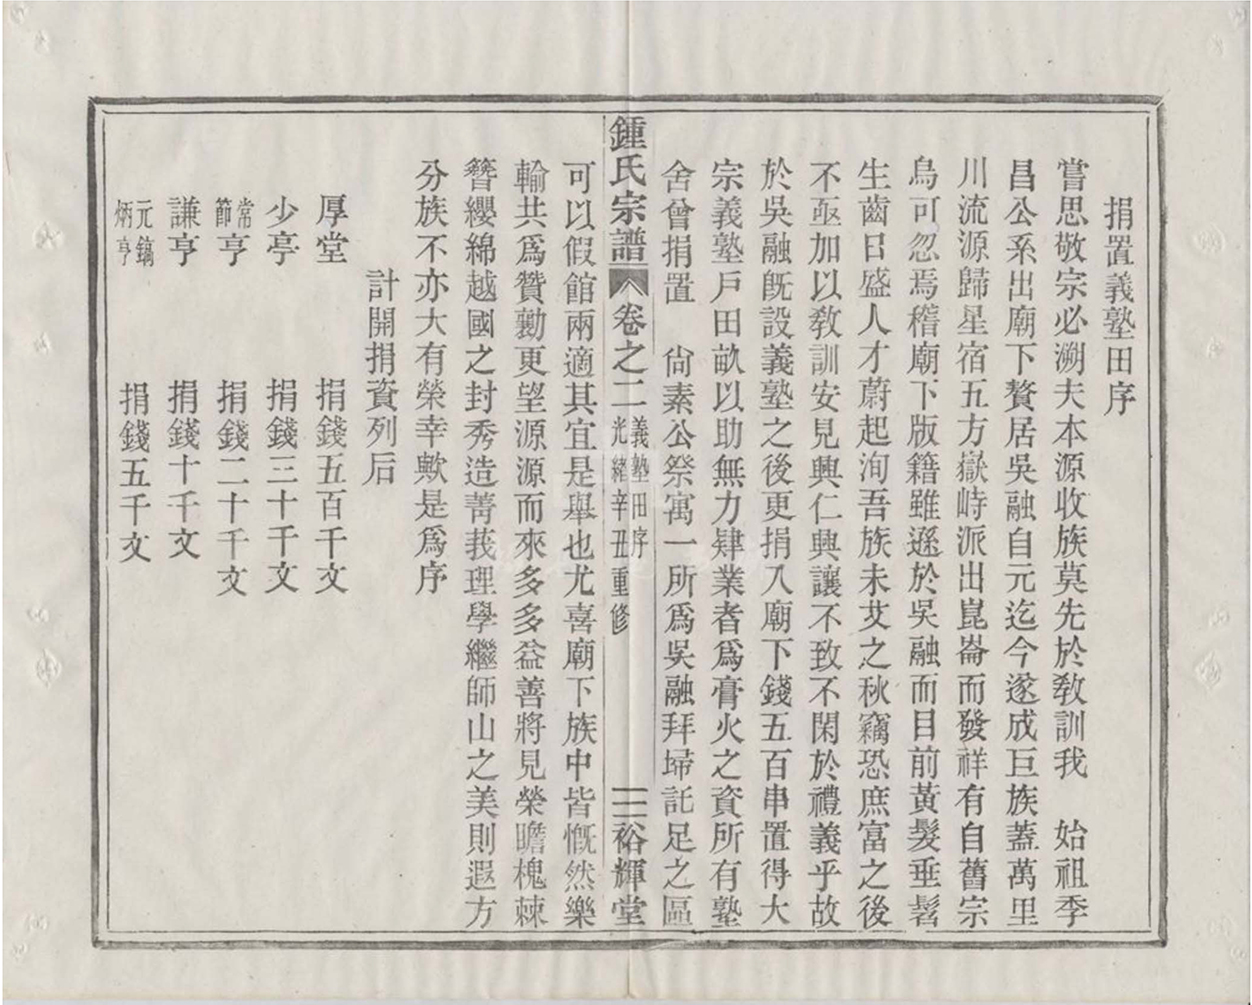 捐置義塾田序
嘗思敬宗必溯夫本源收族莫先於敎訓我　始祖季
昌公系出廟下贅居吳融自元迄今遂成巨族蓋萬里
川流源歸星宿五方嶽峙派出崑崙而發祥有自舊宗
烏可忽焉稽廟下版籍雖遜於吳融而目前黃髮垂髫
生齒日盛人才蔚起洵吾族未艾之秋竊恐庶富之後
不亟加以敎訓安見興仁興讓不致不閑於禮義乎故
於吳融旣設義塾之後更捐入廟下錢五百串置得大
宗義塾戶田畝以助無力肄業者爲膏火之資所有塾
舍曾捐置　尙素公祭寓一所爲吳融拜埽託足之區
鍾氏宗譜　卷之二　義塾田序　光緖辛丑重修　三　裕輝堂
可以假館兩適其宜是舉也尤喜廟下族中皆慨然樂
輸共爲贊勷更望源源而來多多益善將見榮瞻槐棘
簪纓綿越國之封秀造菁莪理學繼師山之美則遐方
分族不亦大有榮幸歟是爲序
計開捐資列后
厚堂　捐錢五百千文
少亭　捐錢三十千文
常節亨　捐錢二十千文
謙亨　捐錢十千文
元鎬　炳亨　捐錢五千文